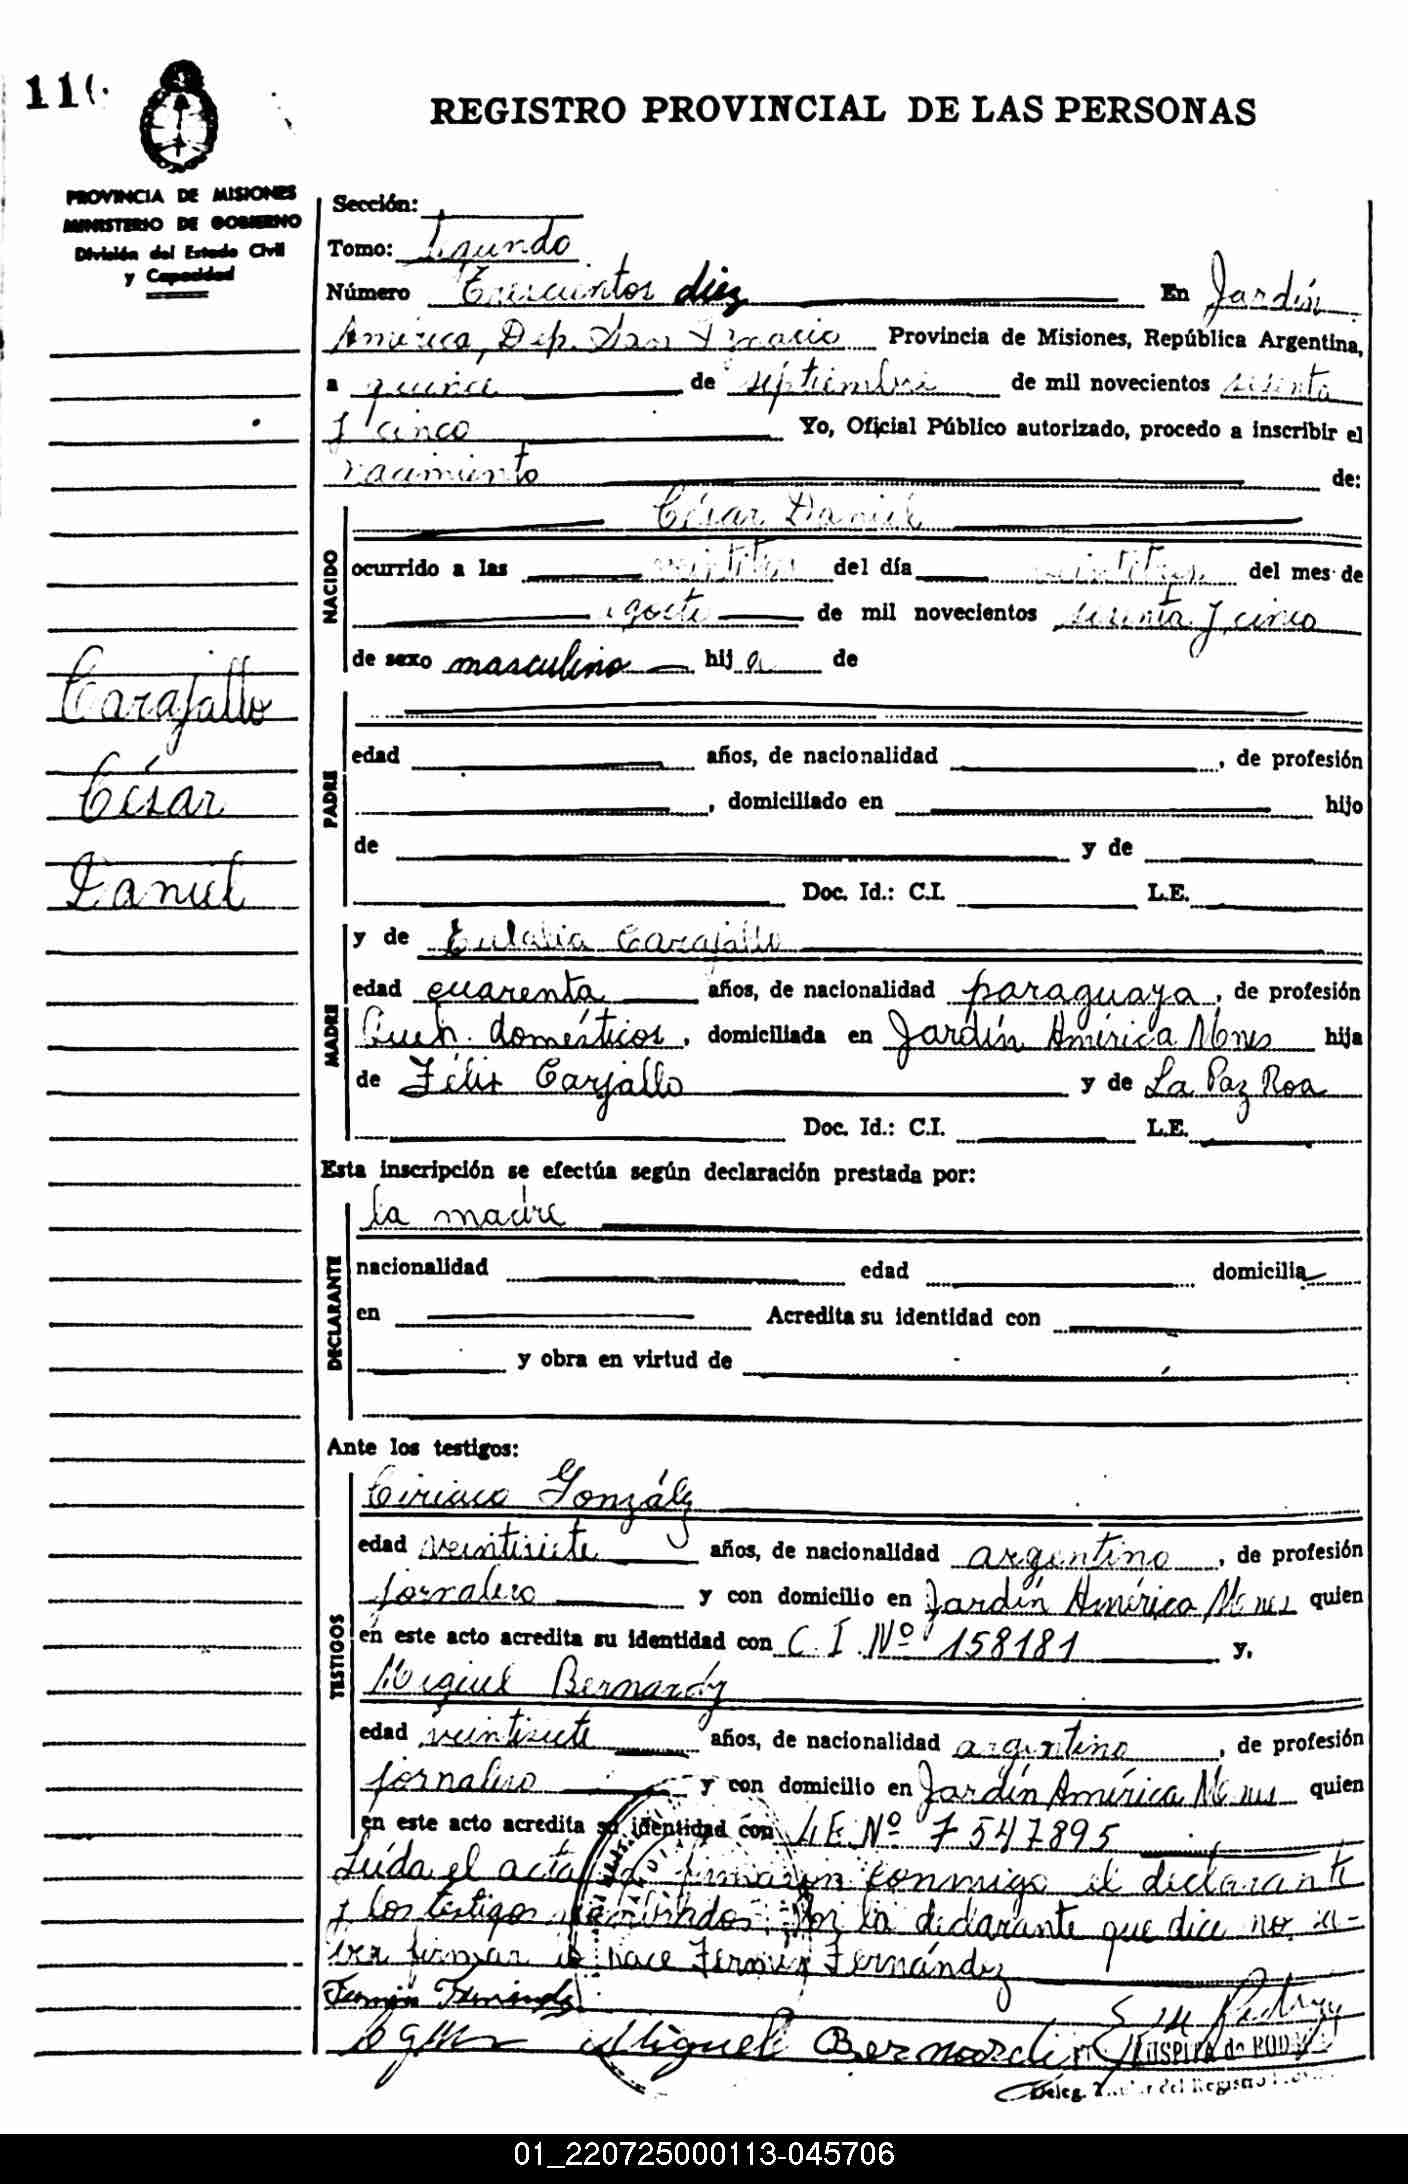 11
REGISTRO PROVINCIAL DE LAS PERSONAS
PROVINCIA DE MISIONES
MINISTERIO DE GOBIERNO
División del Estado Civil
y Capacidad
Sección:
Tomo: Segundo
Número Trescientos diez En Jardín
América, Dep. San Ignacio Provincia de Misiones, República Argentina,
a quince de septiembre de mil novecientos sesenta
y cinco Yo, Oficial Público autorizado, procedo a inscribir el
nacimiento de:
NACIDO
César Daniel
ocurrido a las veintitres del día veintitres del mes de
agosto de mil novecientos sesenta y cinco
de sexo masculino hij o de
Carajallo
César
Daniel
PADRE
edad años, de nacionalidad , de profesión
, domiciliado en hijo
de y de
Doc. Id.: C.I. L.E.
MADRE
y de Eulalia Carajallo
edad cuarenta años, de nacionalidad paraguaya, de profesión
Queh. domésticos, domiciliada en Jardín América Mnes hija
de Félix Carjallo y de La Paz Roa
Doc. Id.: C.I. L.E.
Esta inscripción se efectúa según declaración prestada por:
DECLARANTE
la madre
nacionalidad edad domicilia
en Acredita su identidad con
y obra en virtud de
Ante los testigos:
TESTIGOS
Ciriaco González
edad veintisiete años, de nacionalidad argentino, de profesión
jornalero y con domicilio en Jardín América Mnes quien
en este acto acredita su identidad con C. I. Nº 158181 y,
Miguel Bernardy
edad veintisiete años, de nacionalidad argentino, de profesión
jornalero y con domicilio en Jardín América Mnes quien
en este acto acredita su identidad con L.E. Nº 7547895
Leída el acta la firmaron conmigo el declarante
y los testigos nombrados. Por la declarante que dice no sa-
ber firmar lo hace Fermín Fernández
Fermín Fernández
Miguel Bernardin
de
Deleg. del Registro
01_220725000113-045706